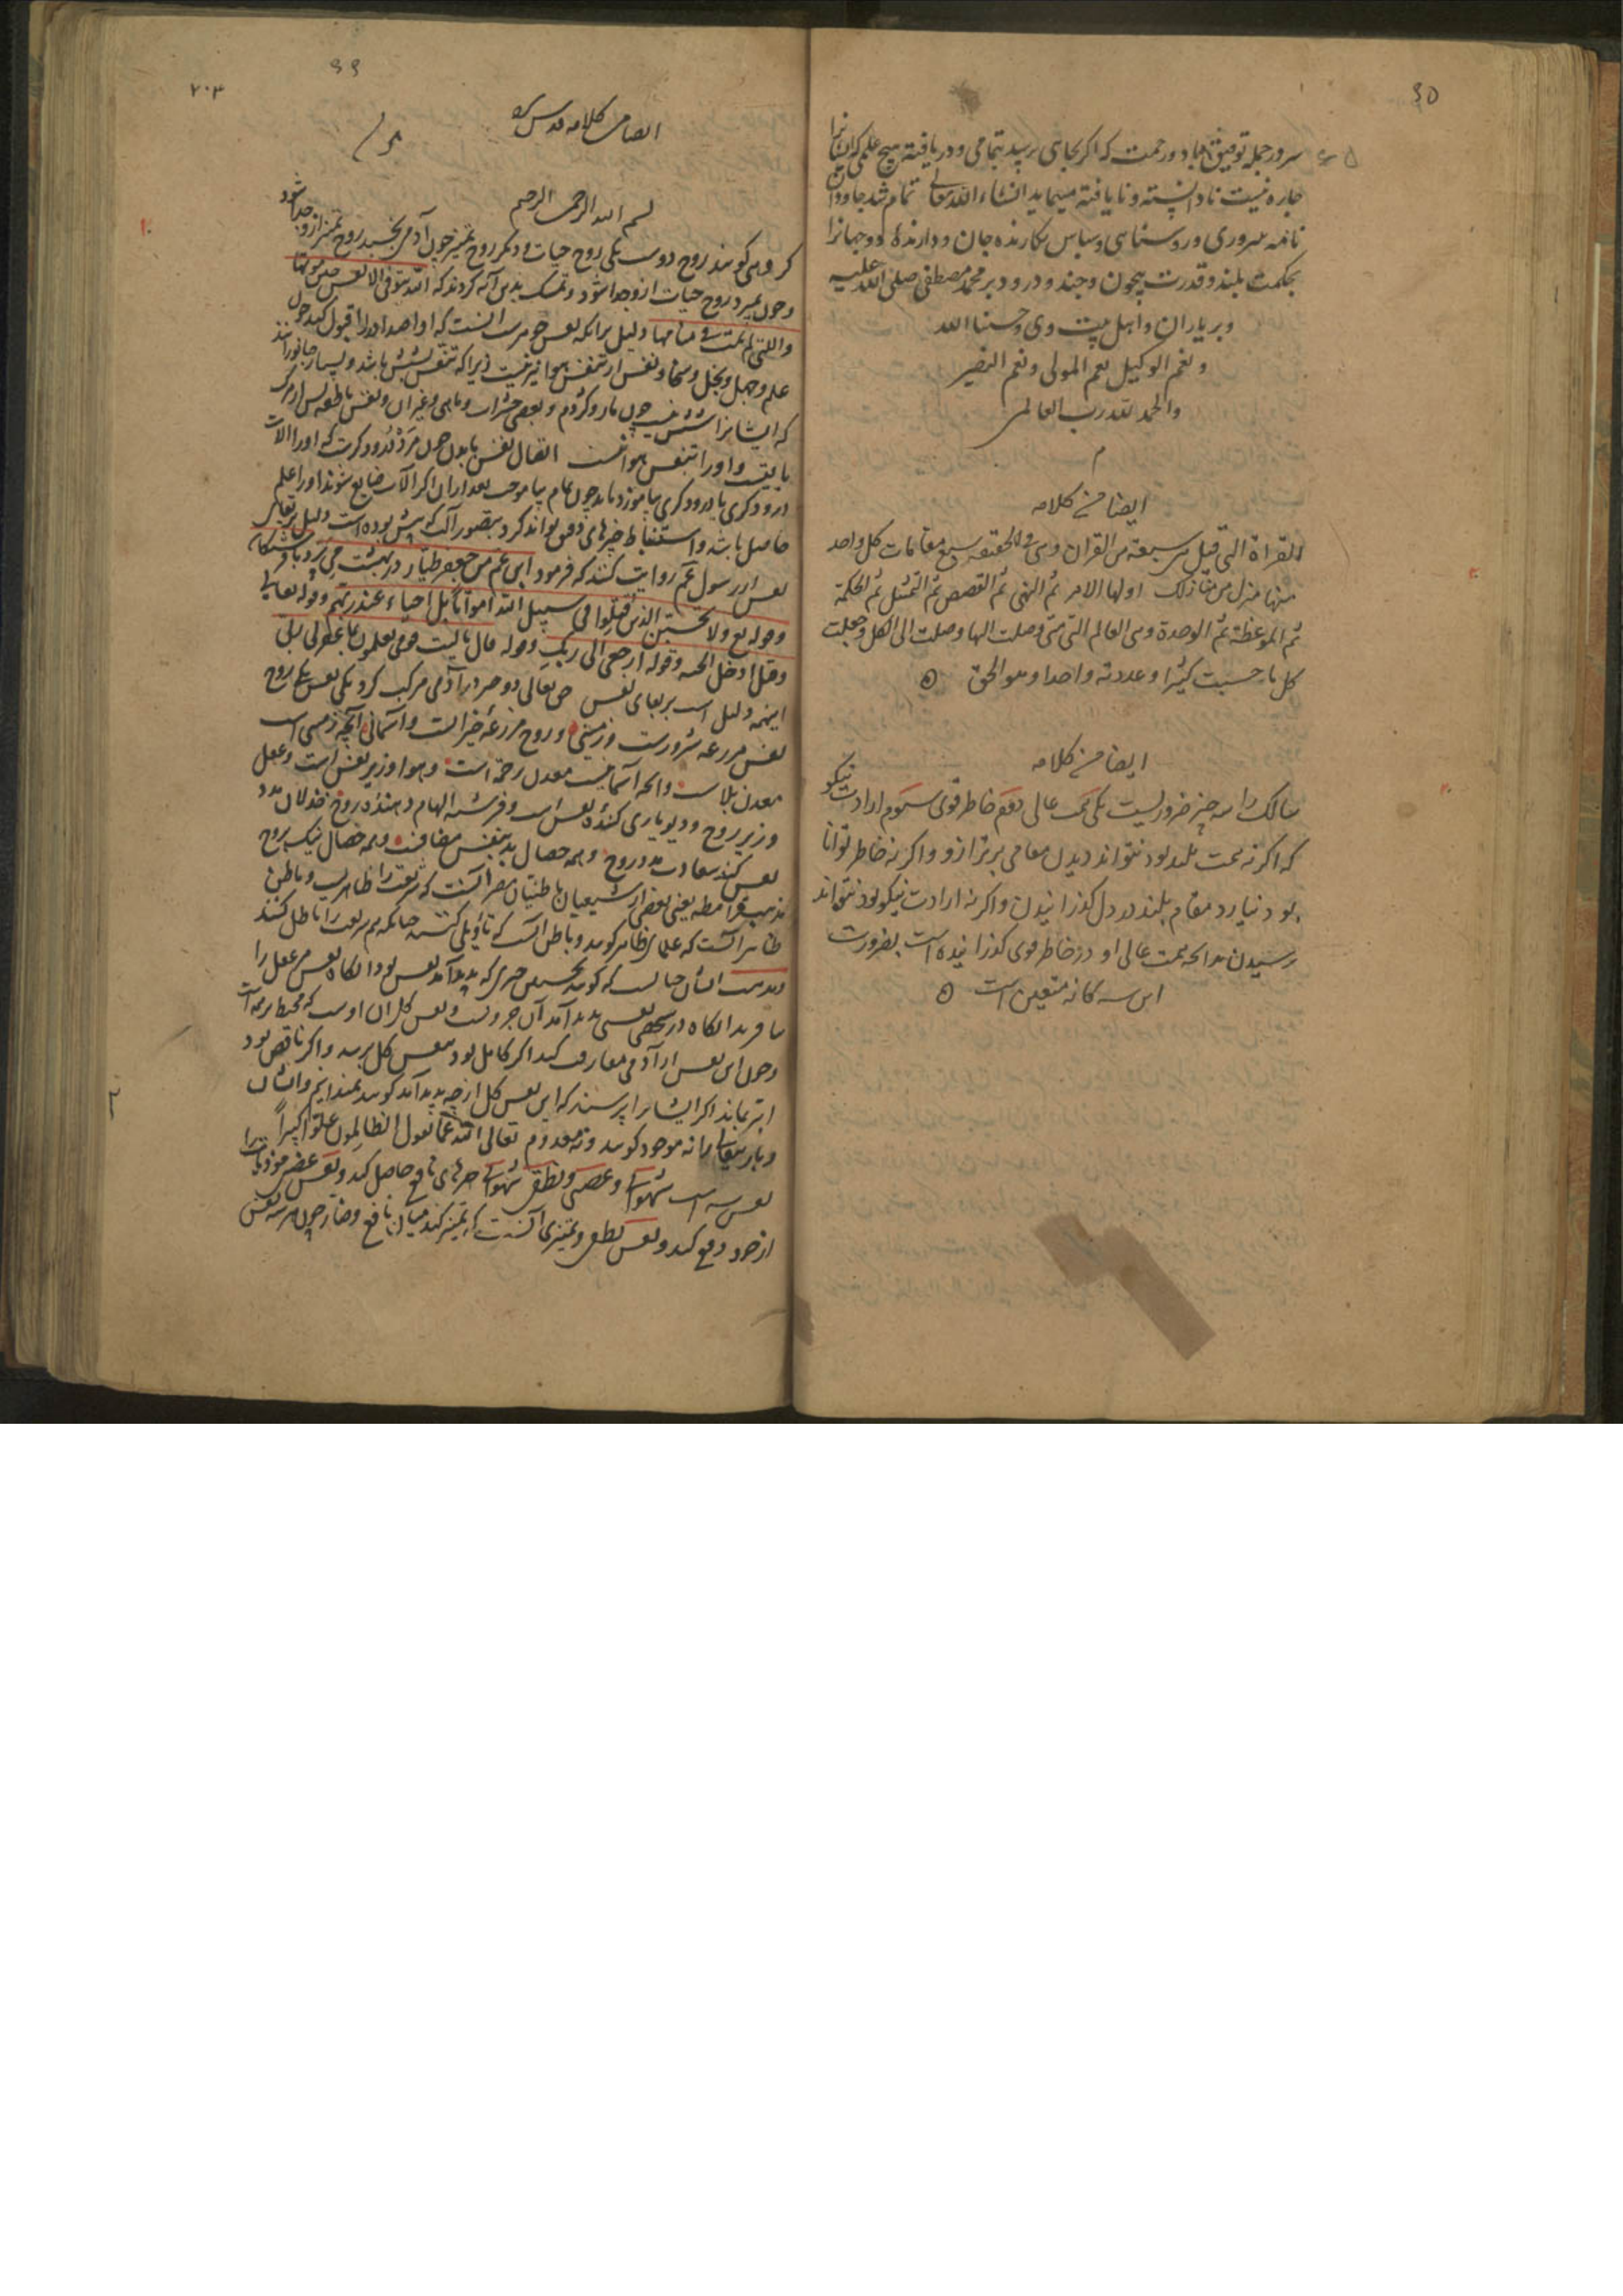 ۹۵
سرور جمله توفیق باد و رحمت که اگر بجای برسد بتمامی و دریافته هیچ علمی که ایشانرا
چاره نیست نادانسته و نایافته میماند انشاء الله تعالی تمام شد جاودان
نامه و سپاس نگارنده جان و دارندهٔ دو جهانرا
بحکمت بلند و قدرت بیچون و چند و درود بر محمد مصطفی صلی الله علیه
و بر یاران و اهل بیت وی و حسبنا الله
و نعم الوکیل نعم المولی و نعم النصیر
والحمد لله رب العالمین
م
ایضا من کلامه
القراة التی قیل سبعة من القران وهی فی الحقیقه سبع مقامات کل واحد
منها منزل من منازلک اولها الامر ثم النهی ثم القصص ثم التمثیل ثم الحکمة
ثم الموعظة ثم الوحدة وهی العالم التی متی وصلت الیها وصلت الی الکل وجعلت
کل ما حسبت کثیرا و عددته واحدا و هو الحق
ایضا من کلامه
سالک را سه چیز ضروریست یکی همت عالی دوم خاطر قوی سیوم ارادت نیکو
که اگر نه همت بلند بود نتواند دیدن مقامی برتر ازو و اگر نه خاطر توانا
بود نیارد مقام بلند در دل گذرانیدن و اگر نه ارادت نیکو بود نتواند
رسیدن بدانچه همت عالی او در خاطر قوی گذرانیده است بضرورت
این سه گانه متعین است
۹۶
۲۰۳
ایضا من کلامه قدس سره
بسم الله الرحمن الرحیم
گروهی گویند روح دوست یکی روح حیات و دیگر روح تمییز چون آدمی بخسبد روح تمییز ازو جدا شود
و چون بمیرد روح حیات ازو جدا شود و تمسک بدین آیه کردند که الله یتوفی الانفس حین موتها
واللتی لم تمت فی منامها دلیل برانکه نفس جوهرست انست که او اضداد را قبول کند چون
علم و جهل و بخل و سخا و نفس از تنفس هوا نیز نیست زیرا که تنفس بشش باشد و بسیار جانورانند
که ایشانرا شش نیست چون مار و کژدم و بعضی حشرات و ماهی و غیر آن و نفس ناطقه پس از مرگ
باقیست و او را تنفس هوا نیست اتصال نفس با بدن چون مرد درودگرست که او را آلات
درودگری باید درودگری بیاموزد باید چون تمام بیاموخت بعد ازان اگر آلات ضایع شوند او را علم
حاصل باشد و استنباط چیزهای دقیق تواند کرد بتصور آلت که پیش بوده است دلیل بر بقای
نفس از رسول عم روایت کنند که فرمود ابن عم من جعفر طیار در بهشت می پرد با فرشتگان
و قوله تع ولا تحسبن الذین قتلوا فی سبیل الله امواتا بل احیاء عند ربهم و قوله تعالی
و قیل ادخل الجنه و قوله ارجعی الی ربک و قوله قال یالیت قومی یعلمون بما غفر لی ربی
اینهمه دلیل است بر بقای نفس حق تعالی دو جوهر در آدمی مرکب کرد یکی نفس یکی روح
نفس مزرعه شرورست و زمینی و روح مزرعهٔ خیراتست و آسمانی آنچه زمینی است
معدن بلاست و انچه آسمانیست معدن رحمة است و هوا وزیر نفس است و عقل
وزیر روح و دیو یاری کنندهٔ نفس است و فرشته الهام دهندهٔ روح خذلان مدد
نفس کند سعادت مدد روح و همه خصال بد بنفس مضافست و همه خصال نیک بروح
مذهب قرامطه یعنی بعضی از شیعیان باطنیان مصر آنست که شریعت را ظاهریست و باطن
ظاهر آنست که علمای ظاهر گویند و باطن آنست که تأویلی کنند چنانکه هم شریعت را باطل کنند
و مذهب ایشان چنانست که گویند نخستین چیزی که پدید آمد نفس بود آنگاه نفس مر عقل را
بیافرید آنگاه در شخصی نفسی پدید آمد آن جزویست و نفس کل آن اوست که محیط بر همه است
و چون این نفس از آدمی مفارقت کند اگر کامل بود بنفس کل برسد و اگر ناقص بود
ابتر بماند اگر ایشانرا پرسند که این نفس کل از چه پدید آمد گویند نمیدانیم و ایشان
و باریتعالی را نه موجود گویند و نه معدوم تعالی الله عما یقول الظالمون علوا کبیرا
نفس سه است شهوانی و غضبی و نطقی شهوانی چیزهای نافع حاصل کند و نفس غضبی موذیات را
از خود دفع کند و نفس نطقی و تمییزی آنست که تمییز کند میان نافع و ضار چون هر سه نفس